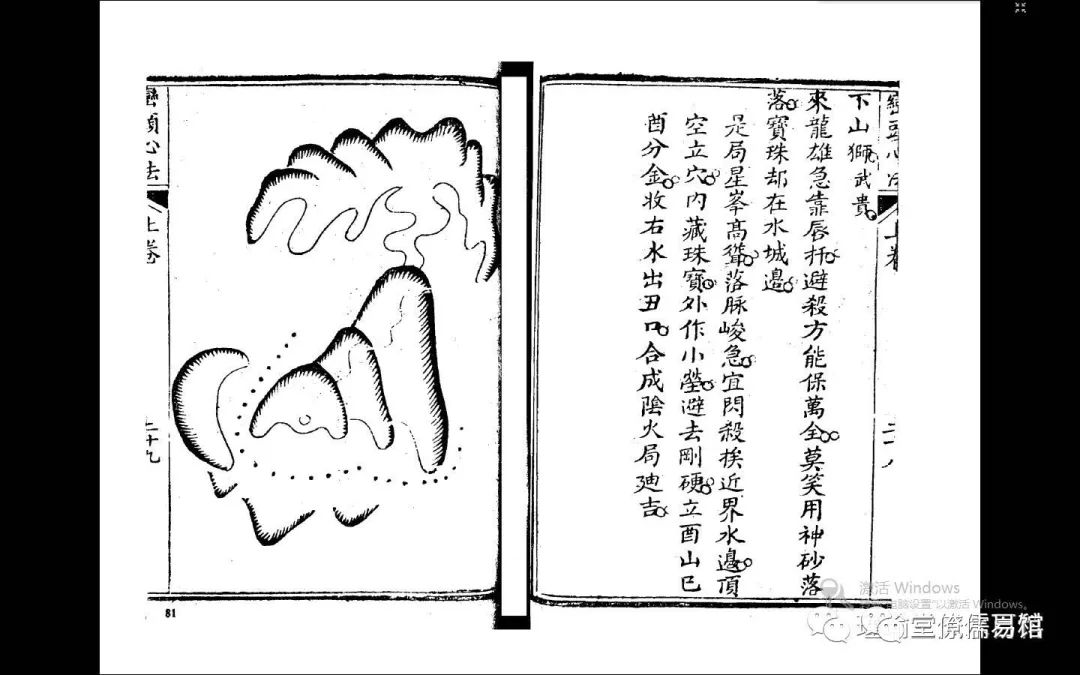 下山獅武貴
來龍雄急靠唇扦避殺方能保萬全莫笑用神砂落
落寶珠却在水城邊
是局星峯髙聳落脉峻急宜閃殺挨近界水邊頂
空立穴内藏珠寶外作小塋避去剛硬立酉山巳
酉分金收右水出丑口合成陰火局廸吉
巒頭心法
上卷
二十九
81
激活 Windows
电脑设置"以激活 Windows。